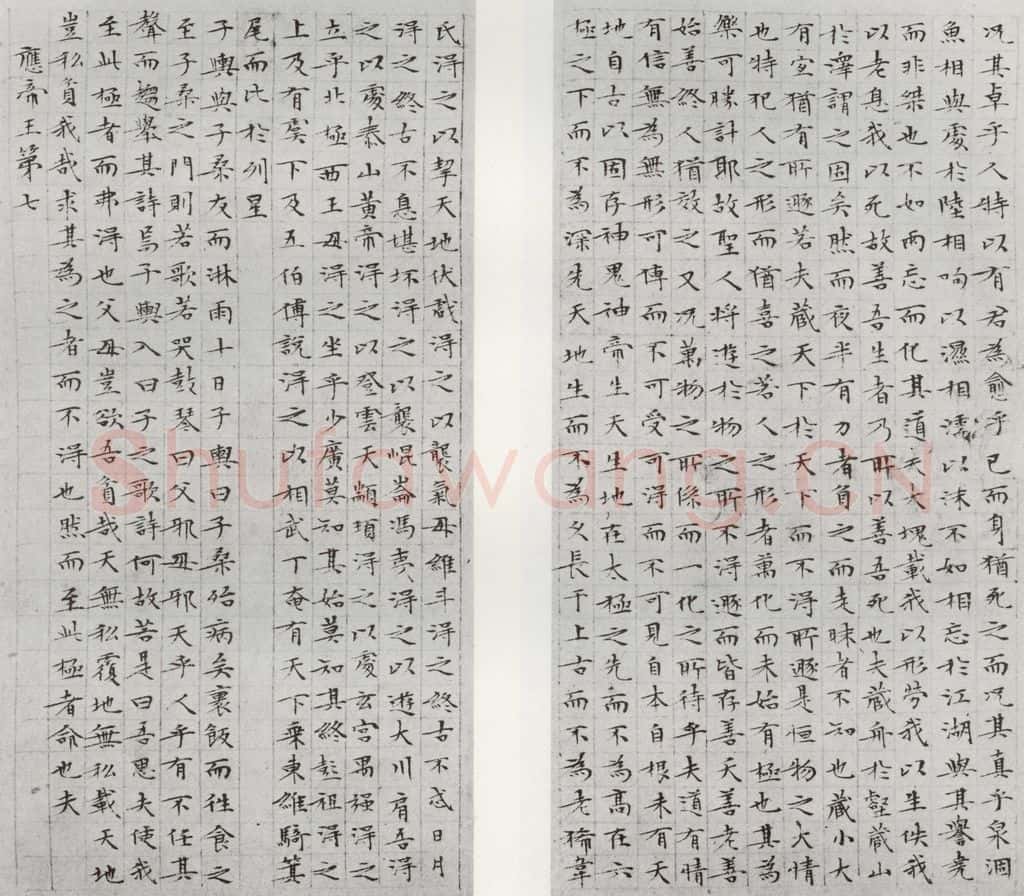 况其卓乎人特以有君為愈乎已而身猶死之而况其真乎泉涸
魚相與處於陸相呴以濕相濡以沫不如相忘於江湖與其譽堯
而非桀也不如兩忘而化其道夫大塊載我以形勞我以生佚我
以老息我以死故善吾生者乃所以善吾死也夫藏舟於壑藏山
於澤謂之固矣然而夜半有力者負之而走昧者不知也藏小大
有宜猶有所遯若夫藏天下於天下而不得所遯是恒物之大情
也特犯人之形而猶喜之若人之形者萬化而未始有極也其為
樂可勝計耶故聖人將遊於物之所不得遯而皆存善夭善老善
始善終人猶效之又况萬物之所係而一化之所待乎夫道有情
有信無為無形可傳而不可受可得而不可見自本自根未有天
地自古以固存神鬼神帝生天生地在太極之先而不為高在六
極之下而不為深先天地生而不為久長于上古而不為老狶韋
氏得之以挈天地伏戲得之以襲氣母維斗得之終古不忒日月
得之終古不息堪坏得之以襲崐崙馮夷得之以遊大川肩吾得
之以處泰山黄帝得之以登雲天顓頊得之以處玄宮禺强得之
立乎北極西王母得之坐乎少廣莫知其始莫知其終彭祖得之
上及有虞下及五伯傅說得之以相武丁奄有天下乘東維騎箕
尾而比於列星
子輿與子桑友而淋雨十日子輿曰子桑殆病矣裹飯而往食之
至子桑之門則若歌若哭鼓琴曰父邪母邪天乎人乎有不任其
聲而趨舉其詩焉子輿入曰子之歌詩何故若是曰吾思夫使我
至此極者而弗得也父母豈欲吾貧哉天無私覆地無私載天地
豈私貧我哉求其為之者而不得也然而至此極者命也夫
應帝王第七
Shufawang.CN